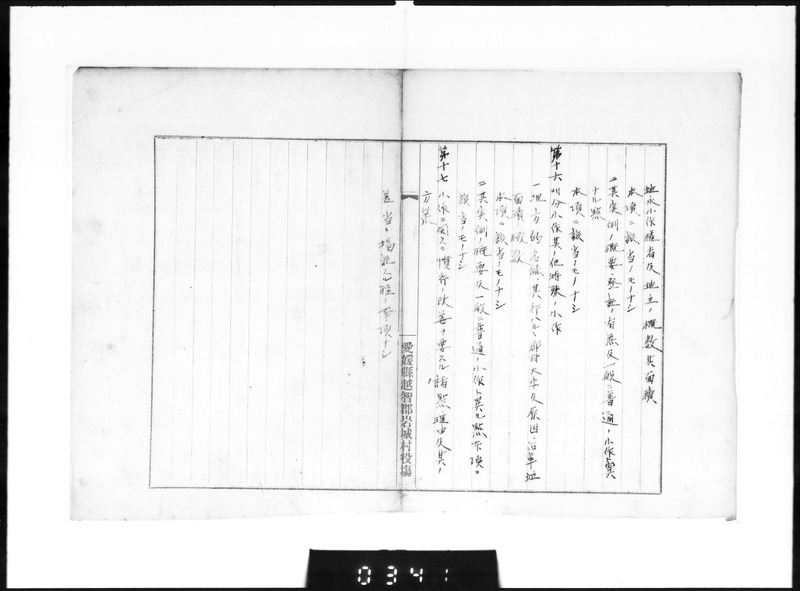 並永小作権者及地主ノ概数其面積
本項ニ該当ノモノナシ
二 其実例ノ概要登記ノ有無及一般ニ普通ノ小作ト異
ナル点
本項ニ該当ノモノナシ
第十六 刈分小作其他特殊ノ小作
一 地方的名称、其行ハルヽ郡村大字及原因沿革並
面積概数
本項ニ該当ノモノナシ
二 其実例ノ概要及一般ニ普通ノ小作ト異ル點本項ニ
該当ノモノナシ
第十七 小作ニ関スル慣行ノ改善ヲ要スル諸點理由及其ノ
方策
差当リ 程ノ事項ナシ
愛媛縣越智郡岩城村役場
0341